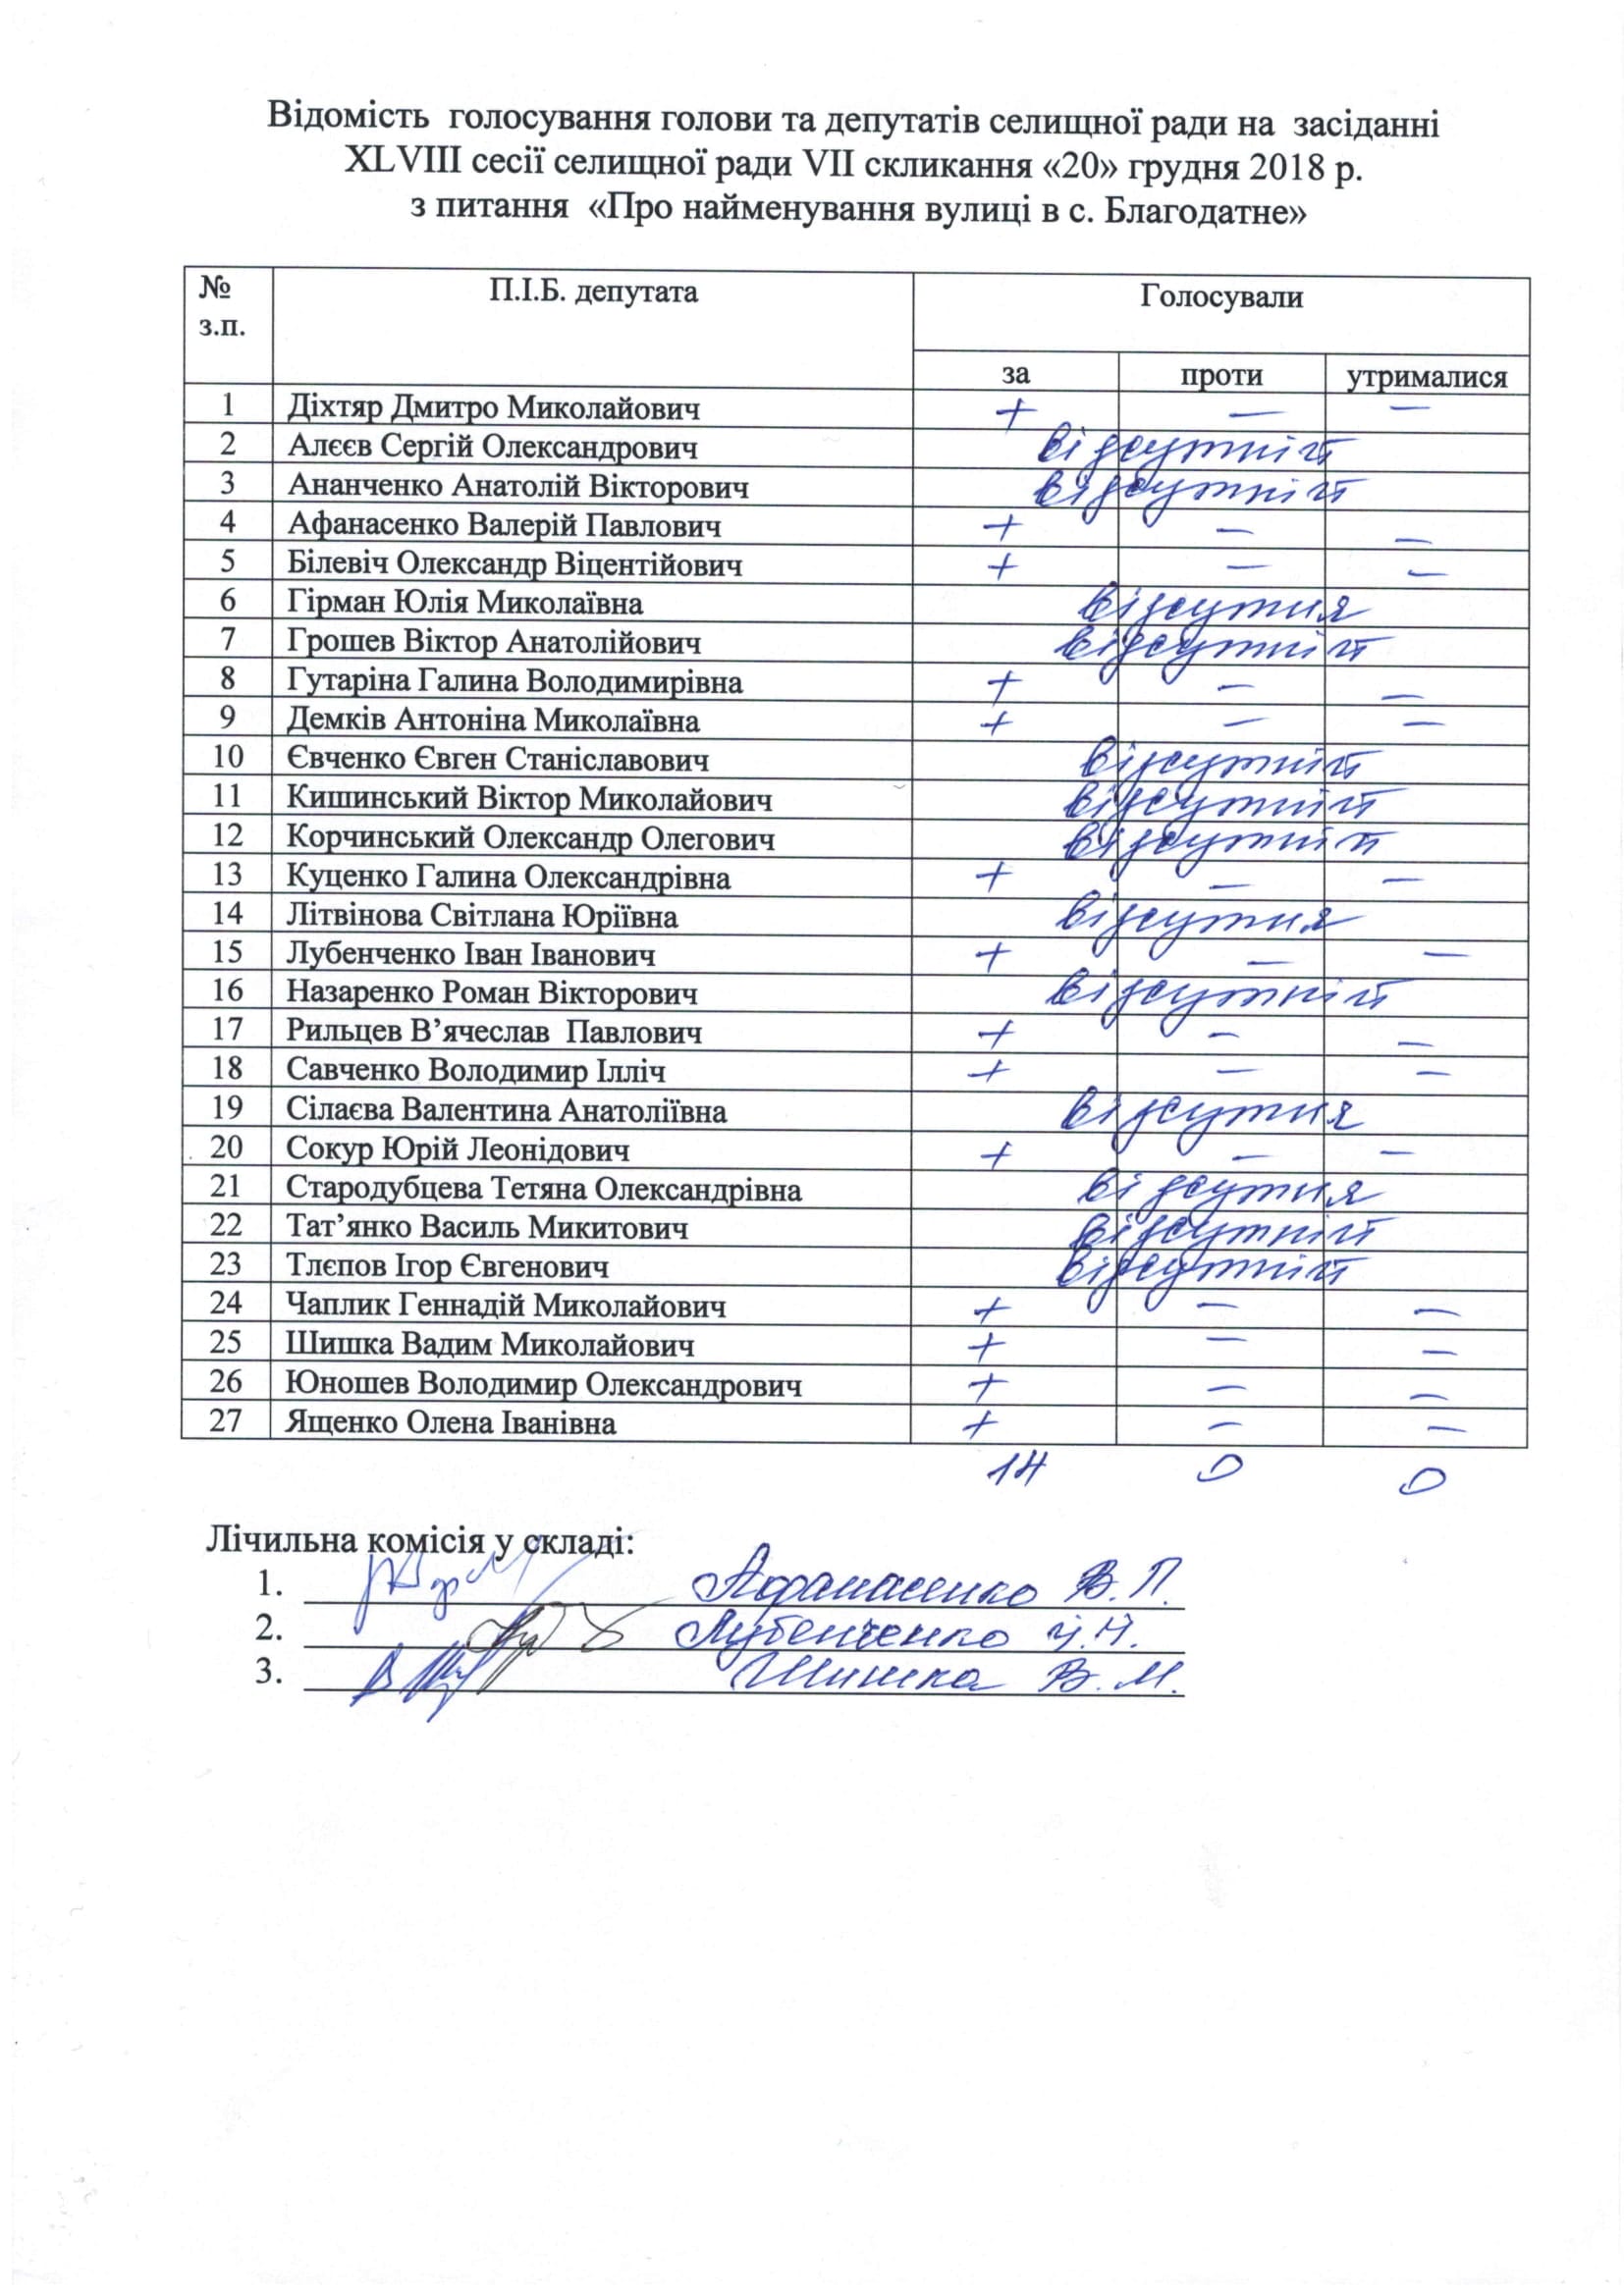 Відомість голосування голови та депутатів селищної ради на засіданні
XLVIII сесії селищної ради VII скликання «20» грудня 2018 р.
з питання «Про найменування вулиці в с. Благодатне»
№ з.п. П.І.Б. депутата Голосували
за проти утрималися
1 Діхтяр Дмитро Миколайович + – –
2 Алєєв Сергій Олександрович відсутній
3 Ананченко Анатолій Вікторович відсутній
4 Афанасенко Валерій Павлович + – –
5 Білевіч Олександр Віцентійович + – –
6 Гірман Юлія Миколаївна відсутня
7 Грошев Віктор Анатолійович відсутній
8 Гутаріна Галина Володимирівна + – –
9 Демків Антоніна Миколаївна + – –
10 Євченко Євген Станіславович відсутній
11 Кишинський Віктор Миколайович відсутній
12 Корчинський Олександр Олегович відсутній
13 Куценко Галина Олександрівна + – –
14 Літвінова Світлана Юріївна відсутня
15 Лубенченко Іван Іванович + – –
16 Назаренко Роман Вікторович відсутній
17 Рильцев В’ячеслав Павлович + – –
18 Савченко Володимир Ілліч + – –
19 Сілаєва Валентина Анатоліївна відсутня
20 Сокур Юрій Леонідович + – –
21 Стародубцева Тетяна Олександрівна відсутня
22 Тат’янко Василь Микитович відсутній
23 Тлєпов Ігор Євгенович відсутній
24 Чаплик Геннадій Миколайович + – –
25 Шишка Вадим Миколайович + – –
26 Юношев Володимир Олександрович + – –
27 Ященко Олена Іванівна + – –
14 0 0
Лічильна комісія у складі:
1. Афанасенко В.П.
2. Лубенченко І.І.
3. Шишка В.М.